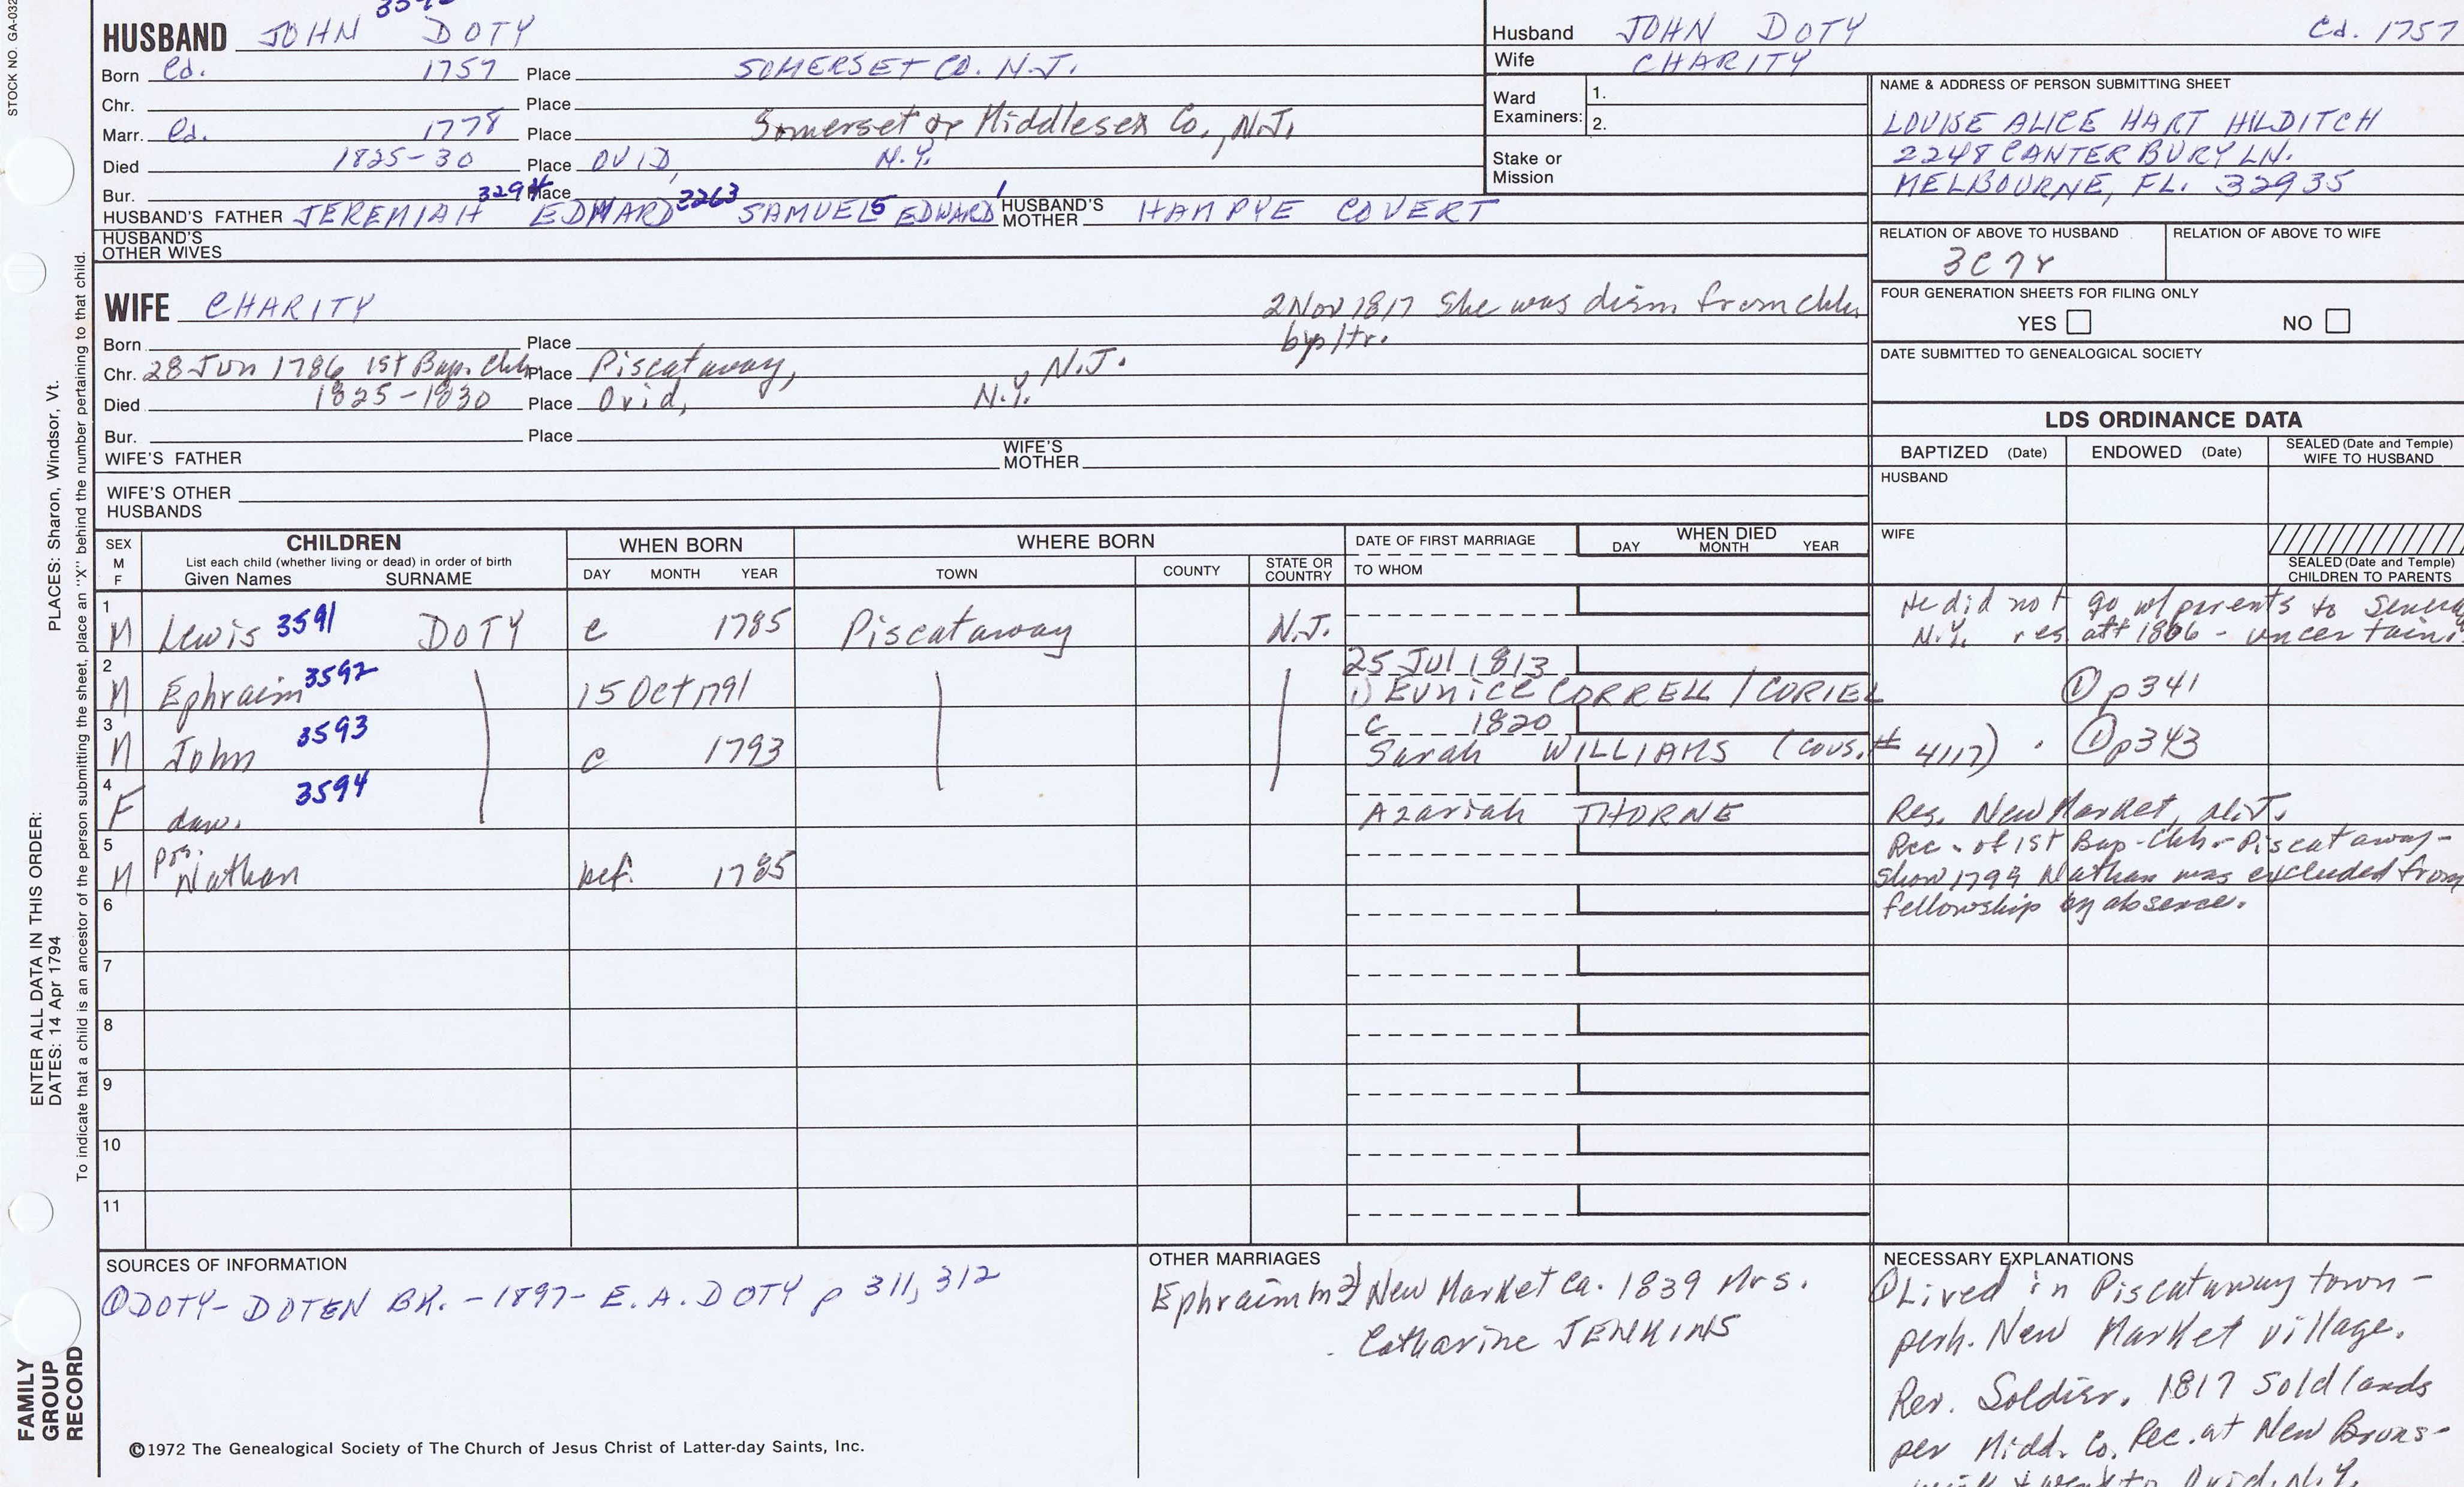 STOCK NO. GA-032
HUSBAND JOHN DOTY
Born Cd. 1757 Place SOMERSET CO. N.J.
Chr. Place
Marr. Cd. 1778 Place Somerset or Middlesex Co., N.J.
Died 1825-30 Place OVID, N.Y.
Bur. Place
HUSBAND'S FATHER JEREMIAH 3294 EDWARD 3263 SAMUEL 5 EDWARD 1 HUSBAND'S MOTHER HAMPYE COVERT
HUSBAND'S OTHER WIVES
Husband JOHN DOTY Cd. 1757
Wife CHARITY
Ward Examiners: 1.
2.
Stake or Mission
NAME & ADDRESS OF PERSON SUBMITTING SHEET
LOUISE ALICE HART HILDITCH
2248 CANTERBURY LN.
MELBOURNE, FL. 32935
RELATION OF ABOVE TO HUSBAND RELATION OF ABOVE TO WIFE
3C7r
FOUR GENERATION SHEETS FOR FILING ONLY
YES NO
DATE SUBMITTED TO GENEALOGICAL SOCIETY
WIFE CHARITY 2 Nov 1817 She was dism from chh.
by ltr.
Born Place
Chr. 28 Jun 1786 1st Bap. Chh. Place Piscataway, N.J.
Died 1825-1830 Place Ovid, N.Y.
Bur. Place
WIFE'S FATHER WIFE'S MOTHER
WIFE'S OTHER HUSBANDS
LDS ORDINANCE DATA
BAPTIZED (Date) ENDOWED (Date) SEALED (Date and Temple) WIFE TO HUSBAND
HUSBAND
WIFE
SEALED (Date and Temple) CHILDREN TO PARENTS
SEX M F
CHILDREN
List each child (whether living or dead) in order of birth
Given Names SURNAME
WHEN BORN
DAY MONTH YEAR
WHERE BORN
TOWN COUNTY STATE OR COUNTRY
DATE OF FIRST MARRIAGE
TO WHOM
WHEN DIED
DAY MONTH YEAR
1 M Lewis 3591 DOTY c 1785 Piscataway N.J. He did not go w/parents to
N.Y. res. aft 1806 -
2 M Ephraim 3592 15 Oct 1791 25 Jul 1813
1) Eunice CORRELL / CORIEL ① p341
3 M John 3593 c 1793 c 1820
Sarah WILLIAMS (cous. # 4117) . ① p343
4 F dau. 3594 Azariah THORNE Res. New Market, N.J.
5 M pos. Nathan bef. 1785 Rec. of 1st Bap. Chh. - Piscataway -
show 1799 Nathan was excluded from
fellowship by absence.
6
7
8
9
10
11
SOURCES OF INFORMATION
① DOTY- DOTEN BK. - 1897- E. A. DOTY p 311, 312
©1972 The Genealogical Society of The Church of Jesus Christ of Latter-day Saints, Inc.
OTHER MARRIAGES
Ephraim m 2) New Market ca. 1839 Mrs.
Catharine JENKINS
NECESSARY EXPLANATIONS
① Lived in Piscataway town -
perh. New Market village.
Rev. Soldier. 1817 sold lands
per Midd. Co. Rec. at New Bruns-
wick & went to Ovid, N.Y.
PLACES: Sharon, Windsor, Vt.
To indicate that a child is an ancestor of the person submitting the sheet, place an "X" behind the number pertaining to that child.
ENTER ALL DATA IN THIS ORDER:
DATES: 14 Apr 1794
FAMILY GROUP RECORD